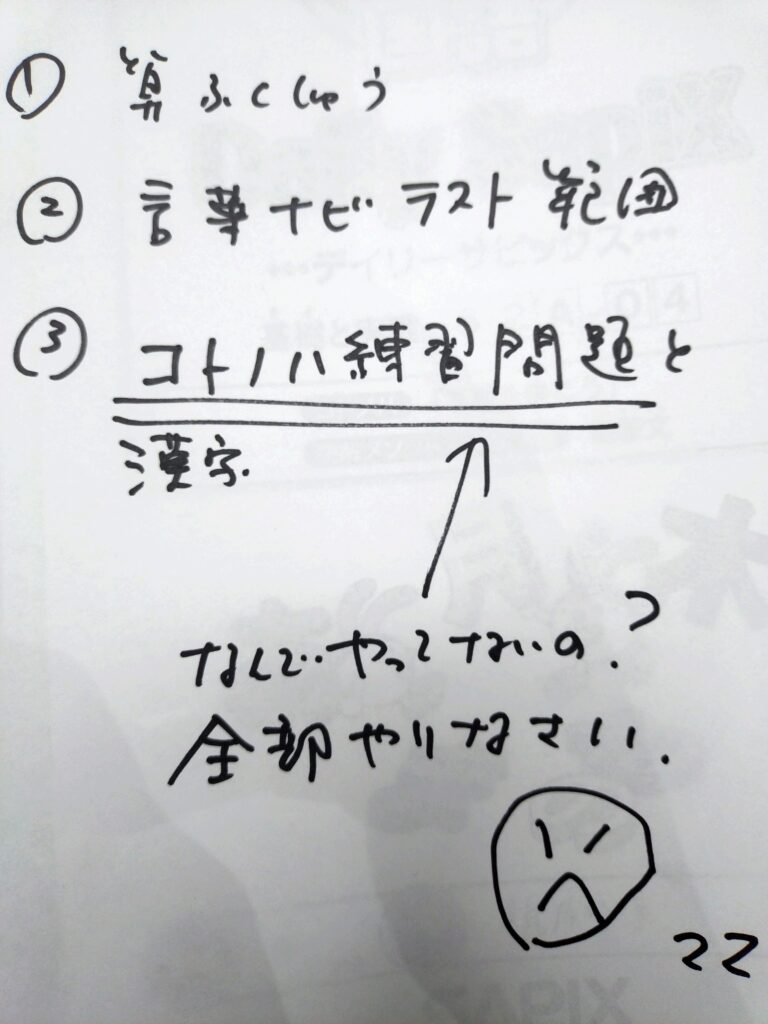 ① 算ふくしゅう
② 言葉ナビ ラスト範囲
③ コトノハ練習問題と
漢字
なんでやってないの?
全部やりなさい.
ママ